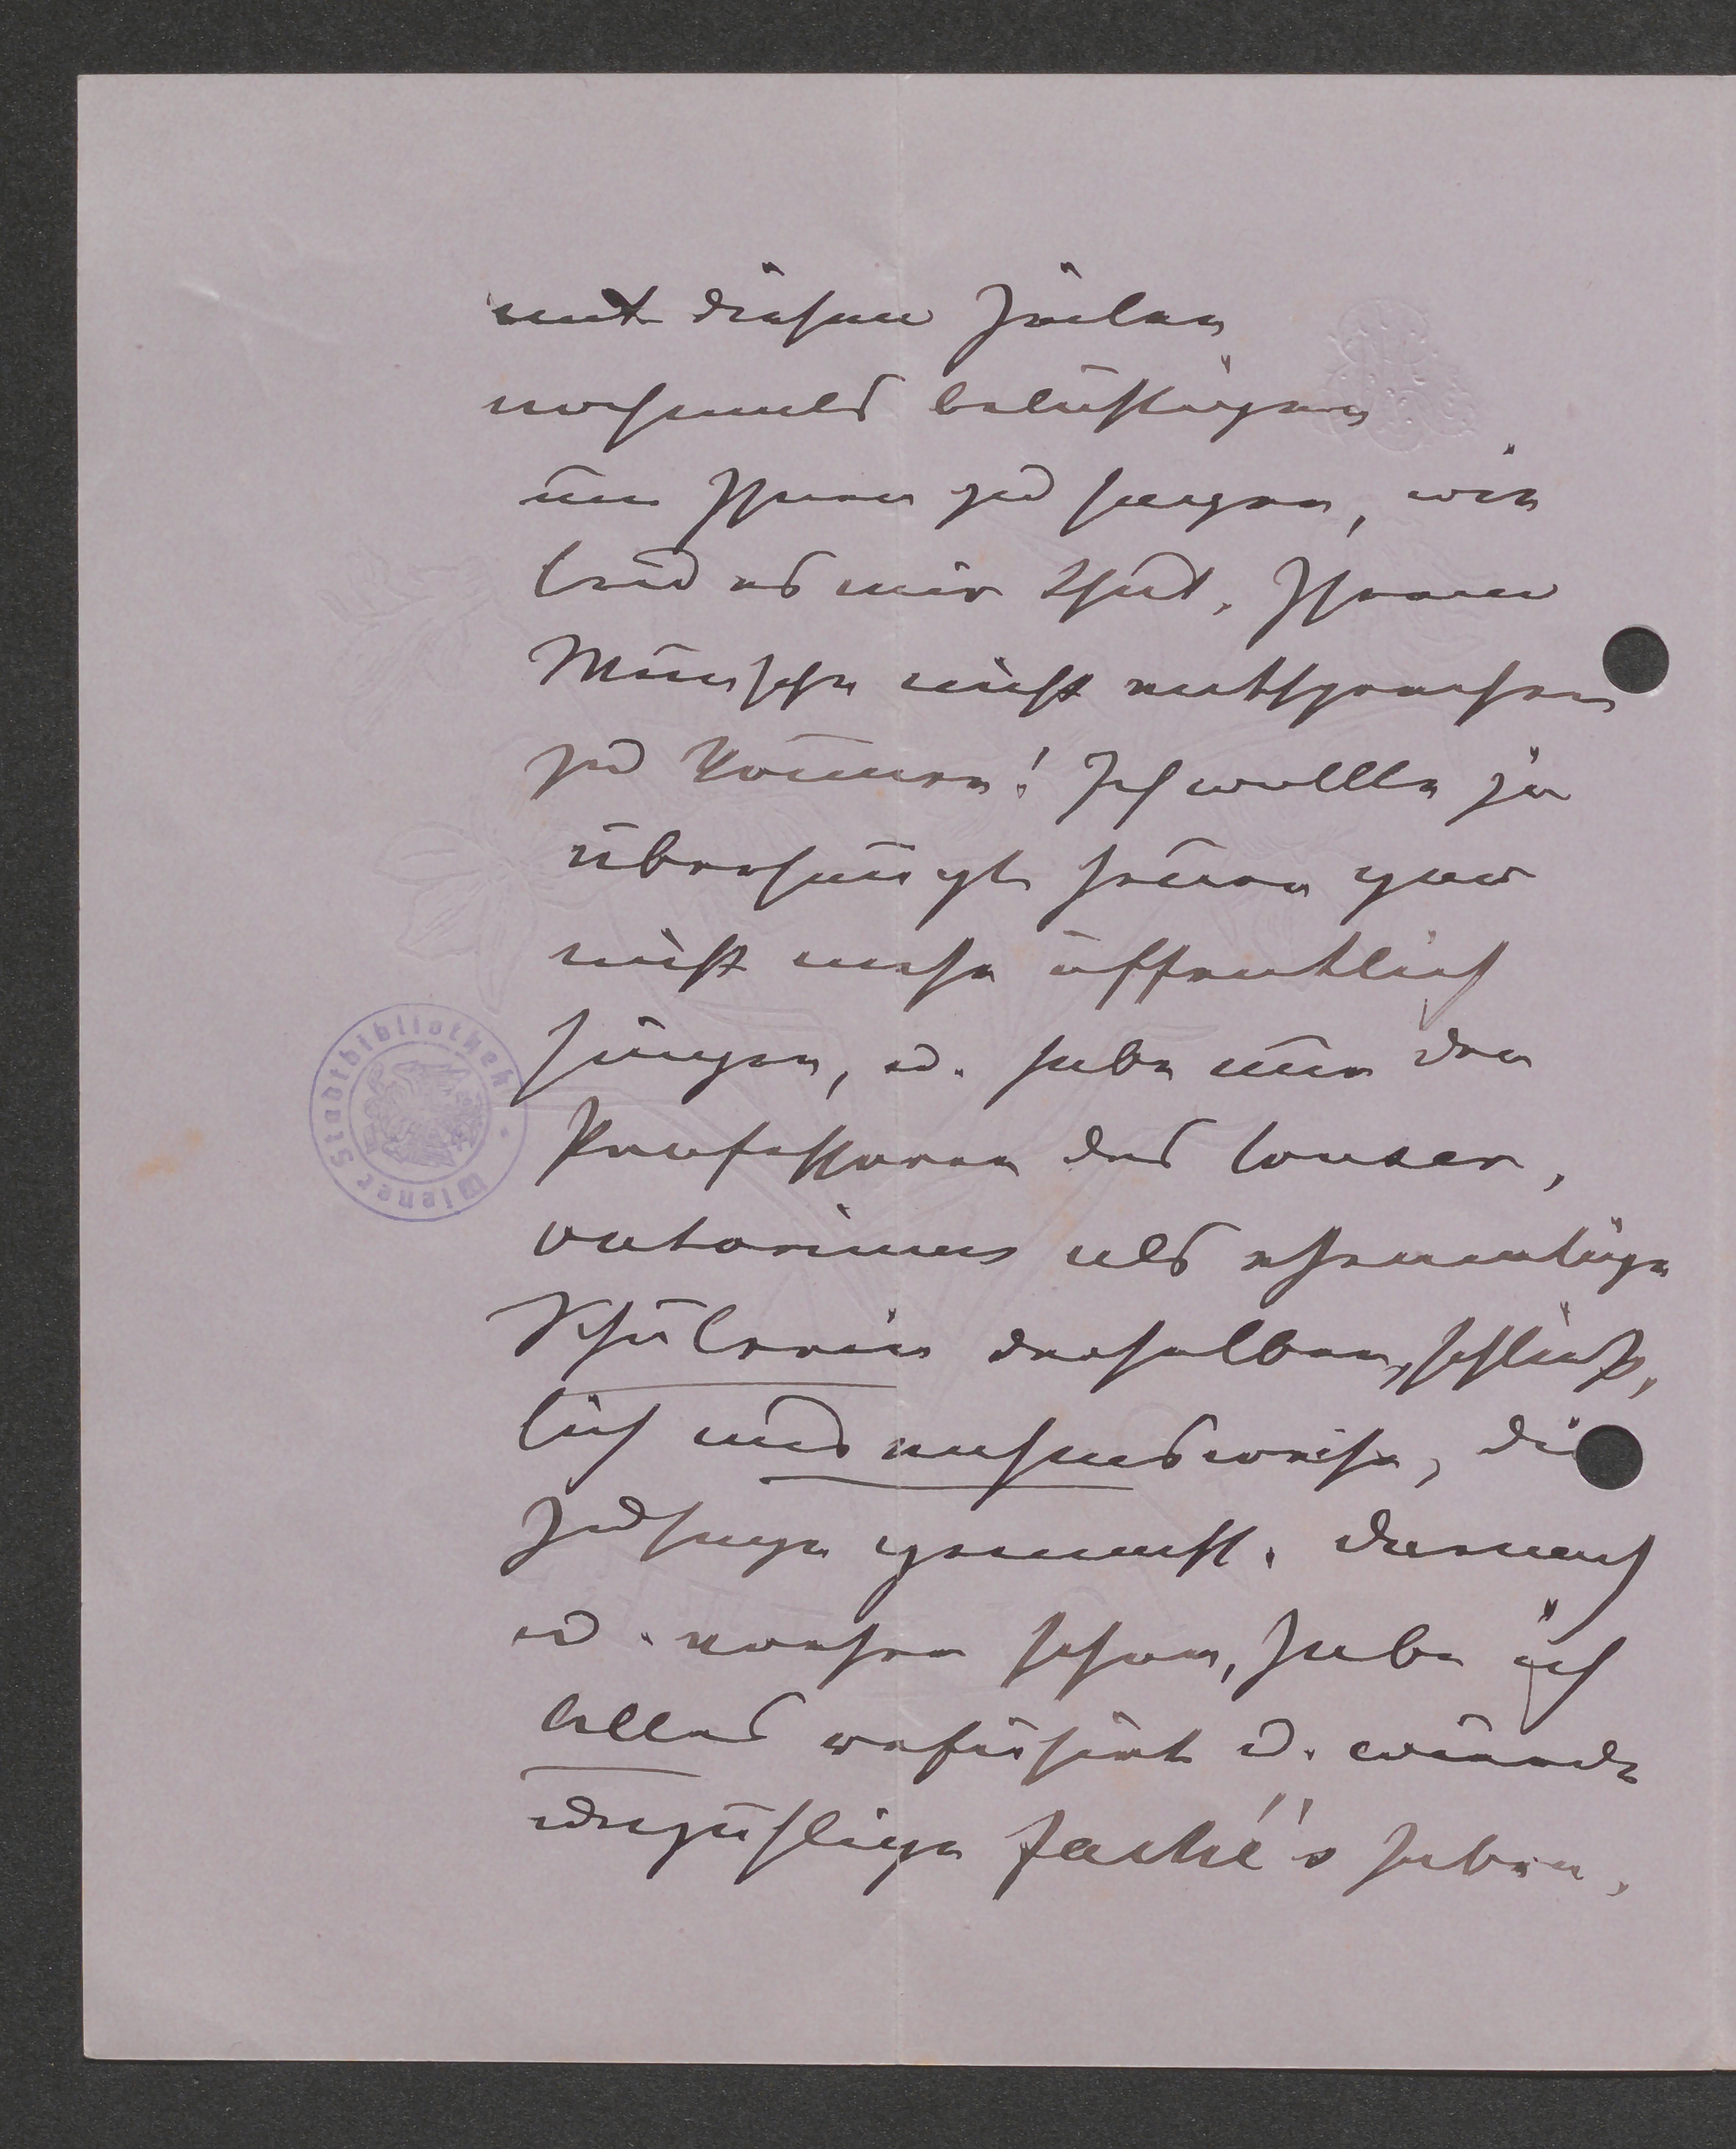 mit diesen Zeilen
nochmals belästigen
um Ihnen zu sagen, wie
leid es mir thut, Ihrem
Wunsche nicht entsprechen
zu können! Ich wollte ja
überhaupt heuer gar
nicht mehr öffentlich
singen, u. habe nur den
Professoren des Conser,
vatoriums als ehemalige
Schülerin derselben, schließ,
lich und ausnahmsweise, die
Zusage gemacht. Darnach
u. vorher schon, habe ich
Alles refüsirt u. würde
unzählige Fâché's haben,
Wiener Stadtbibliothek